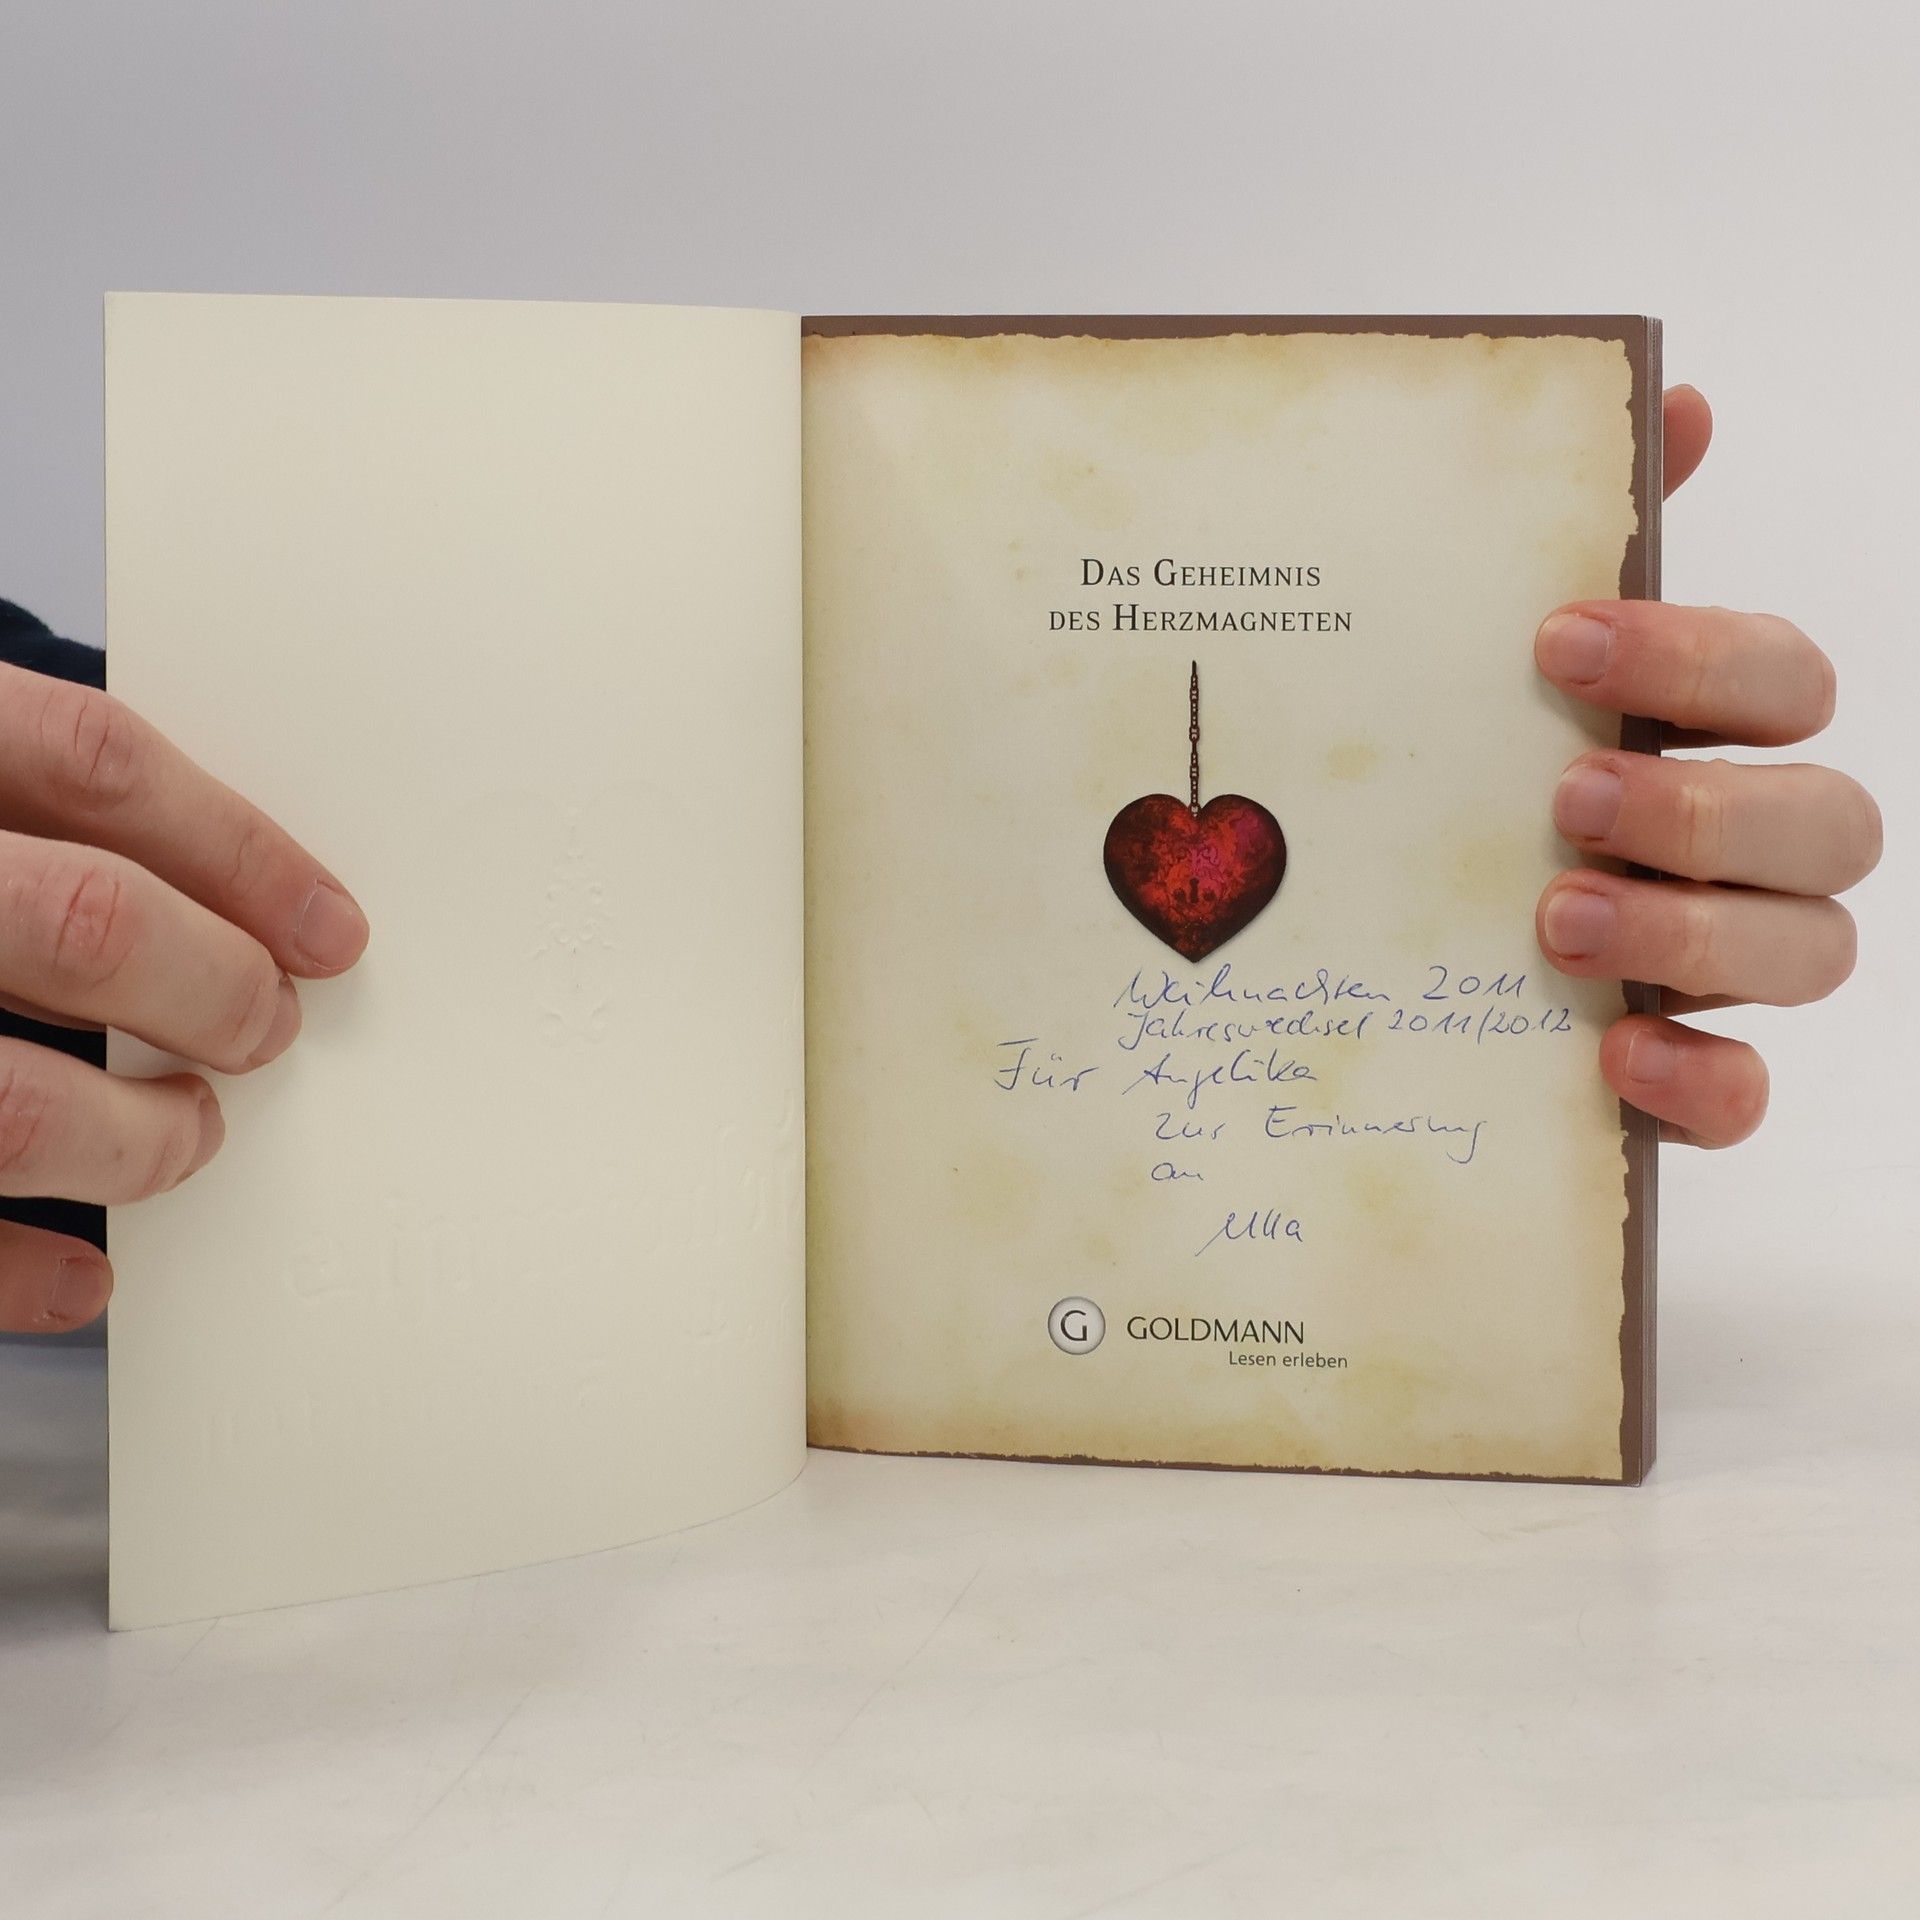 DAS GEHEIMNIS
DES HERZMAGNETEN
Weihnachten 2011
Jahreswechsel 2011/2012
Für Angelika
zur Erinnerung
an
Ulla
G GOLDMANN
Lesen erleben